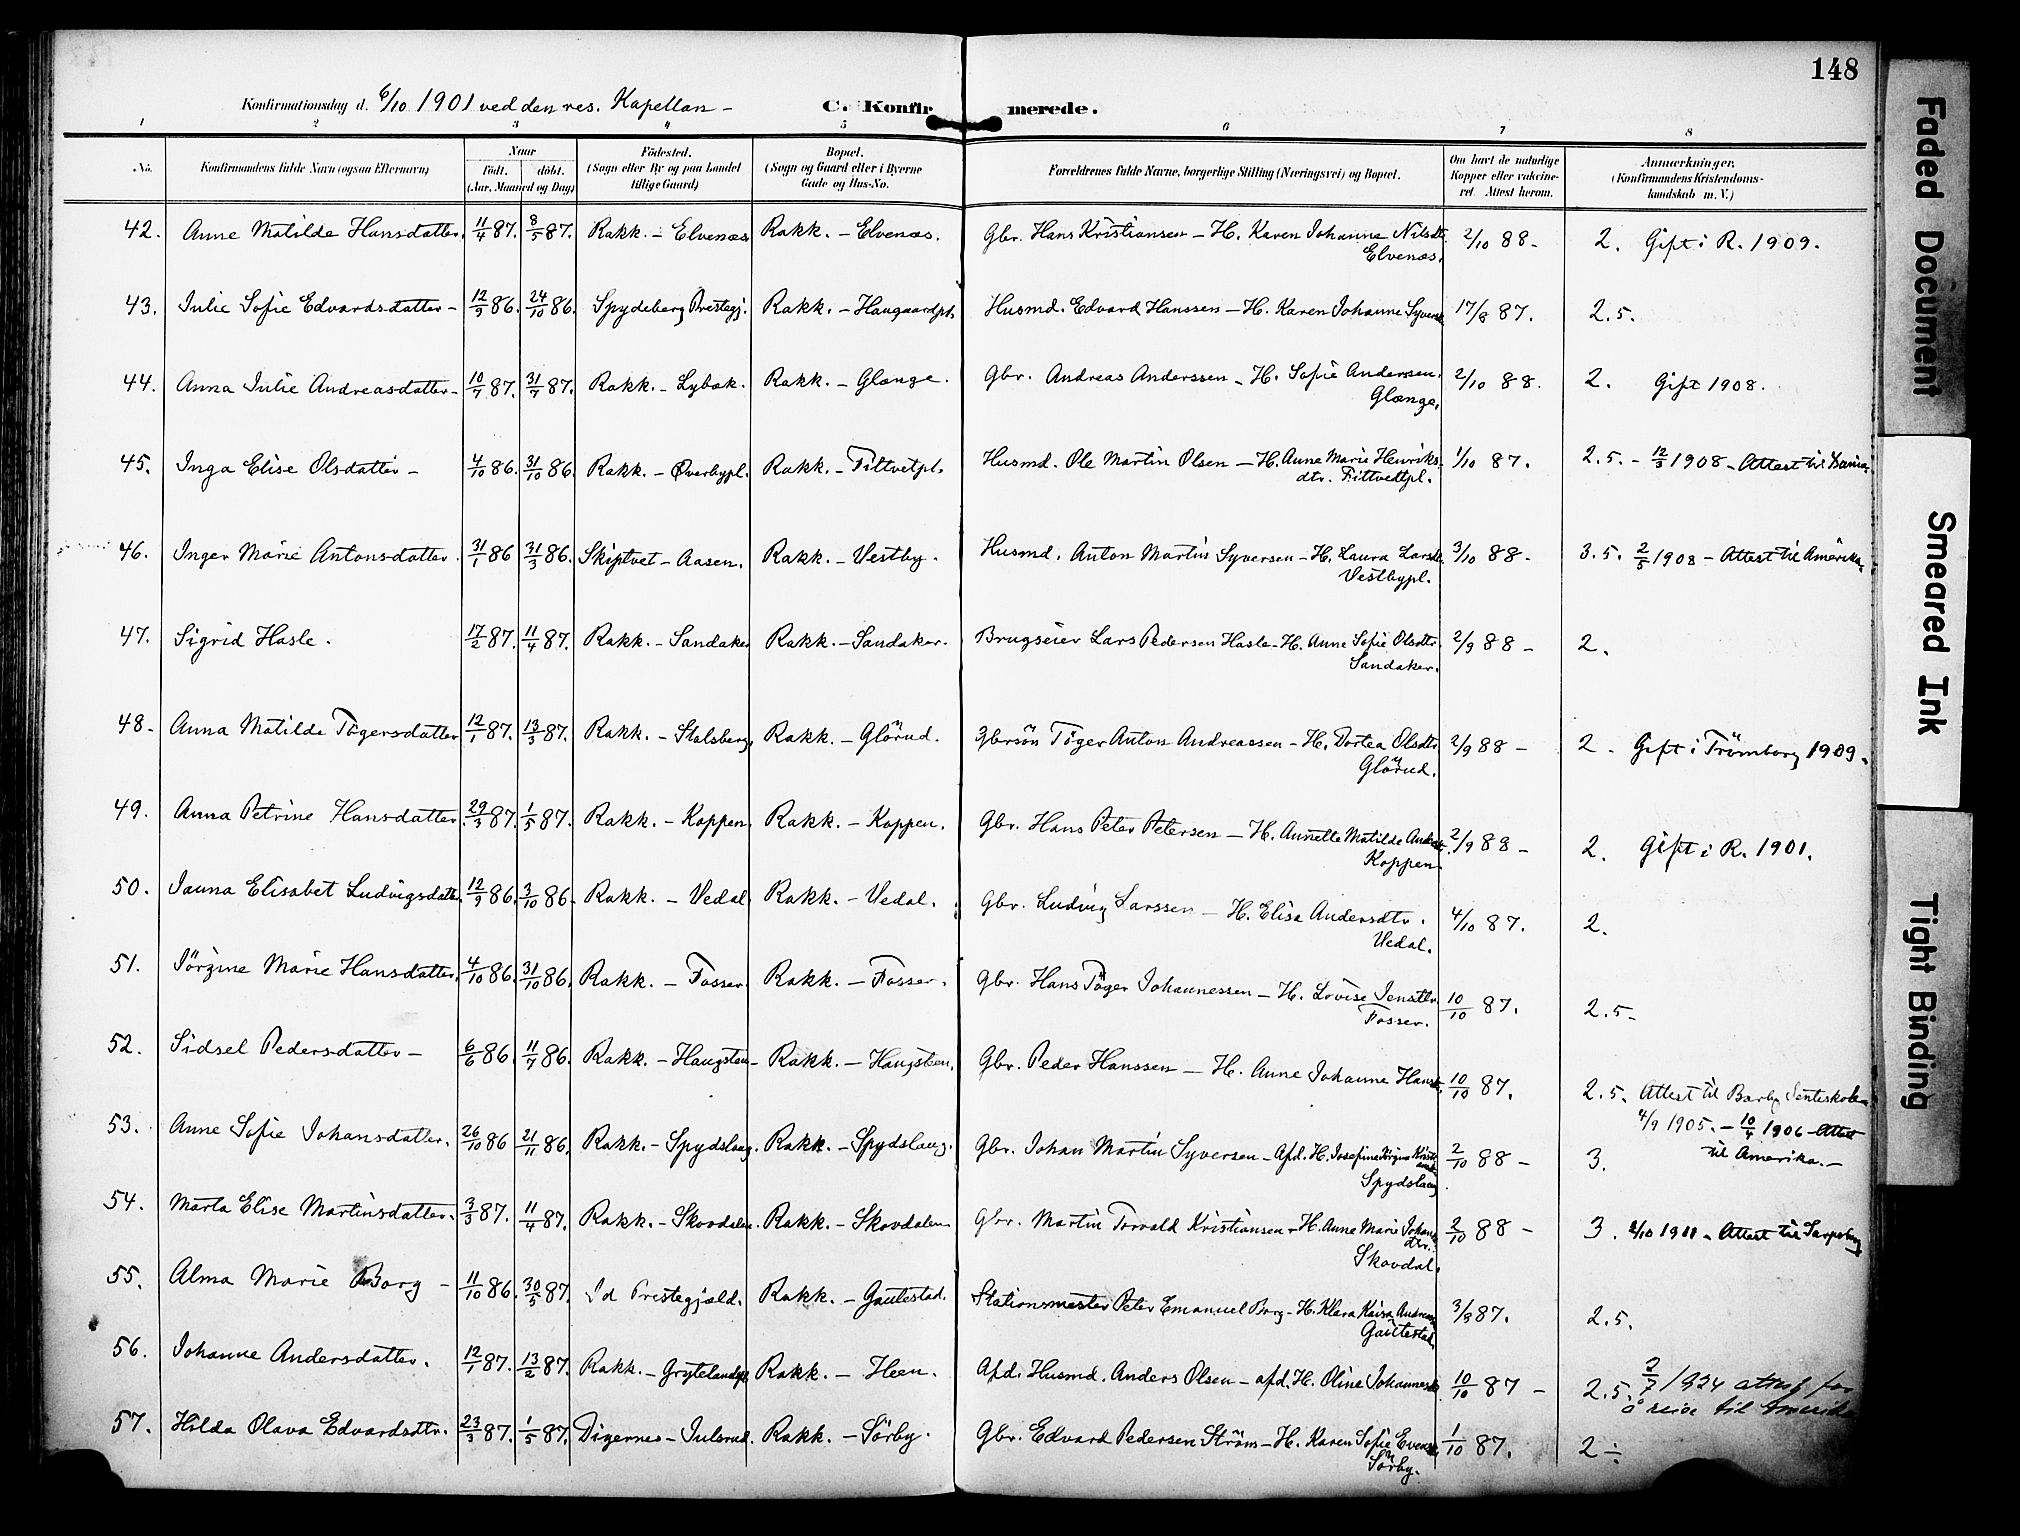 148
Konfirmationsdag d. 6/10 1901 ved den res. Kapellan –
C. Konfirmerede.
1 2 3 4 5 6 7 8
No. Konfirmandens fulde Navn (ogsaa Efternavn) Naar Født. døbt. (Aar, Maaned og Dag) Fødested. (Sogn eller By og paa Landet tillige Gaard) Bopæl. (Sogn og Gaard eller i Byerne Gade og Hus-No. Forældrenes fulde Navne, borgerlige Stilling (Næringsvei) og Bopæl. Om havt de naturlige Kopper eller vakcineret. Attest herom. Anmærkninger. (Konfirmandens Kristendomskundskab m. V.)
42. Anne Matilde Hansdatter. 11/4 87. 8/5 87. Rakk. – Elvenæs Rakk. – Elvenæs. Gbr. Hans Kristiansen – H. Karen Johanne Nilsdt. Elvenæs. 2/10 88 – 2. Gift i R. 1909.
43. Julie Sofie Edvardsdatter – 12/9 86. 24/10 86. Spydeberg Prestegj. Rakk. – Haugaardpl. Husmd. Edvard Hanssen – H. Karen Johanne 17/8 87. 2.5.
44. Anna Julie Andreasdatter – 10/7 87. 31/7 87. Rakk. – Lybæk. Rakk. – Glænge. Gbr. Andreas Anderssen – H. Sofie Anderssen. Glænge. 2/10 88. 2. Gift 1908.
45. Inga Elise Olsdatter – 4/10 86. 31/10 86. Rakk. – Øverbypl. Rakk. – Tittvetpl. Husmd. Ole Martin Olsen – H. Anne Marie Henriksdtr. Tittvedtpl. 1/10 87. 2.5. – 12/3 1908 – Attest til
46. Inger Marie Antonsdatter. 31/1 86 31/3 86. Skiptvet – Aasen. Rakk. – Vestby. Husmd. Anton Martin Syversen – H. Laura Larsdt. Vestbypl. 3/10 88 – 3.5. 2/5 1908 – Attest til Amerika.
47. Sigrid Hasle. 17/2 87. 11/4 87. Rakk. – Sandaker Rakk. – Sandaker. Brugseier Lars Pedersen Hasle – H. Anne Sofie Olsdtr. Sandaker. 2/9 88 – 2.
48. Anna Matilde Tøgersdatter 12/1 87. 13/3 87. Rakk. – Stalsberg. Rakk. – Glörud. Gbrsön Töger Anton Andreassen – H. Dortea Olsdtr. Glörud. 2/9 88 – 2. Gift i Trömborg 1909.
49. Anna Petrine Hansdatter. 29/3 87. 1/5 87. Rakk. – Koppen. Rakk. – Koppen. Gbr. Hans Peter Petersen – H. Annette Matilde Koppen 2/9 88 – 2. Gift i R. 1901.
50. Jauna Elisabet Ludvigsdatter. 12/9 86. 3/10 86. Rakk. – Vedal Rakk. – Vedal. Gbr. Ludvig Larssen – H. Elisa Andersdtr. Vedal. 4/10 87. 2.
51. Jörgine Marie Hansdatter. 4/10 86. 31/10 86. Rakk. – Fosser. Rakk. – Fosser. Gbr. Hans Töger Johannessen – H. Lovise Jensdtr. Fosser. 10/10 87. 2.5.
52. Sidsel Pedersdatter – 6/6 86. 11/7 86. Rakk. – Haugsteen – Rakk. – Haugsteen. Gbr. Peder Hanssen – H. Anne Johanne 10/10 87. 2.5. Attest til
4/9 1905. – 10/4 1906 – Attest til Amerika. –
53. Anne Sofie Johansdatter. 26/10 86 21/11 86. Rakk. – Spydslaug. Rakk. – Spydslaug. Gbr. Johan Martin Syversen – Afd. H. Josefine Spydslaug 2/10 88 – 3.
54. Marta Elise Martinsdatter. 3/3 87. 11/4 87. Rakk. – Skovdalen. Rakk. – Skovdalen Gbr. Martin Torvald Kristiansen – H. Anne Marie Johansdtr. Skovdal. 2/10 88 – 3. 2/10 1911 – Attest til Sarpsborg
55. Alma Marie Borg – 11/10 86. 30/5 87. Id Prestegjæld. Rakk. – Gautestad. Stationsmester Peter Emanuel Borg – H. Klara Gautestad 3/9 87. 2.5.
56. Johanne Andersdatter. 12/1 87. 13/2 87. Rakk. – Grytelandpl. Rakk. – Heen. Afd. Husmd. Anders Olsen – afd. H. Oline 10/10 87 – 2.5. 2/7 1924 attest for å reise til Amerika
57. Hilda Olava Edvardsdtr. 23/3 87. 1/5 87. Digernes – Julsrud. Rakk. – Sörby. Gbr. Edvard Pedersen Ström – H. Karen Sofie Sörby. 1/10 87. 2 ÷
Faded Document
Smeared Ink
Tight Binding